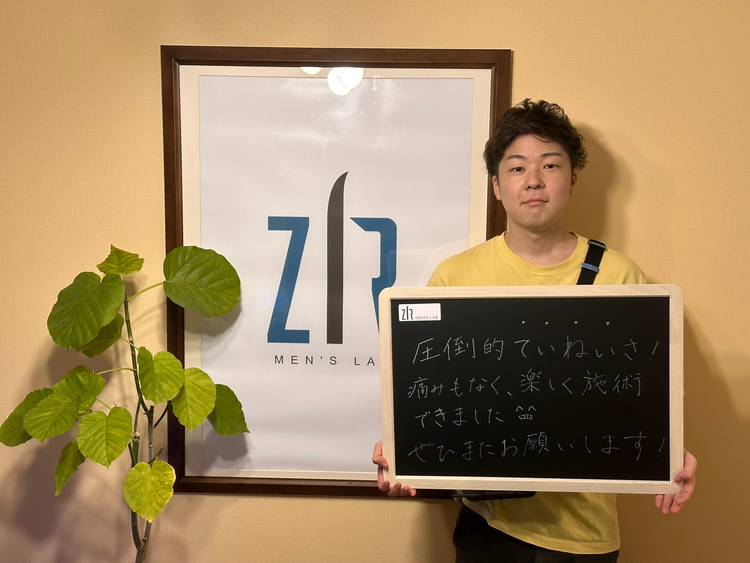 ZIR
MEN'S LA
ZIR MEN'S LAB
圧倒的ていねいさ!
痛みもなく、楽しく施術
できました
ぜひまたお願いします!